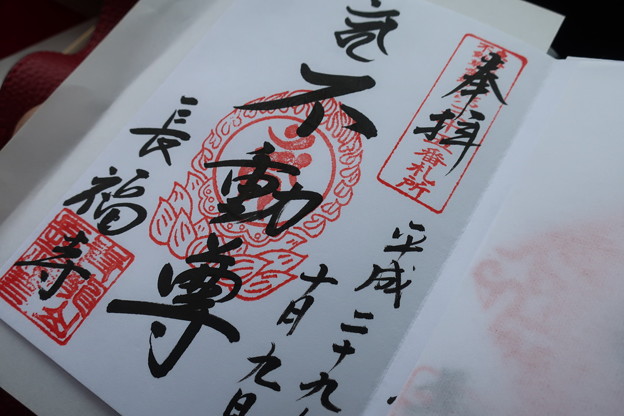 奉拝
番札所
平成二十九年
十月九日
不動尊
長福寺